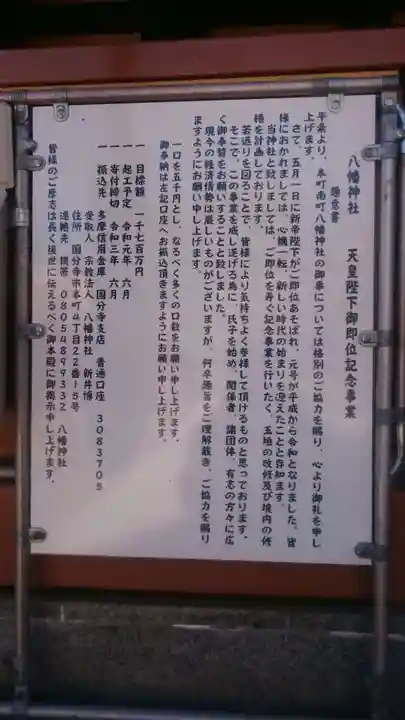 八幡神社　天皇陛下御即位記念事業
趣意書
平素より、本町南町八幡神社の御事については格別のご協力を賜り、心より御礼を申し
上げます。
さて、五月一日に新帝陛下がご即位あそばされ、元号が平成から令和となりました。皆
様におかれましては、心機一転、新しい時代の始まりを迎えたことと存知ます。
当神社と致しましては、ご即位を寿ぐ記念事業を行いたく、玉垣の改修及び境内の修
繕を計画しております。
若返りを図ることで、皆様により気持ちよく参拝して頂けるものと思っております。
そこで、この事業を成し遂げる為に、氏子を始め、関係者、諸団体、有志の方々に広
く御奉賛をお願いすることと致しました。
現今の経済情勢は厳しいものがございますが、何卒趣旨をご理解戴き、ご協力を賜り
ますようにお願い申し上げます。
一口を五千円とし、なるべく多くの口数をお願い申し上げます。
御奉納は左記口座へお振込頂きますようにお願い申し上げます。
目標額　一千七百万円
一　起工予定　令和元年　六月
一　寄付締切　令和三年　六月
一　振込先　多摩信用金庫　国分寺支店　普通口座　３０８３７０５
受取人　宗教法人　八幡神社　新井博
住所　国分寺市本町４丁目２２番１５号
連絡先　携帯　０８０５４８９９３３２　八幡神社
皆様のご厚志は長く後世に伝えるべく御本殿に御掲示申し上げます。